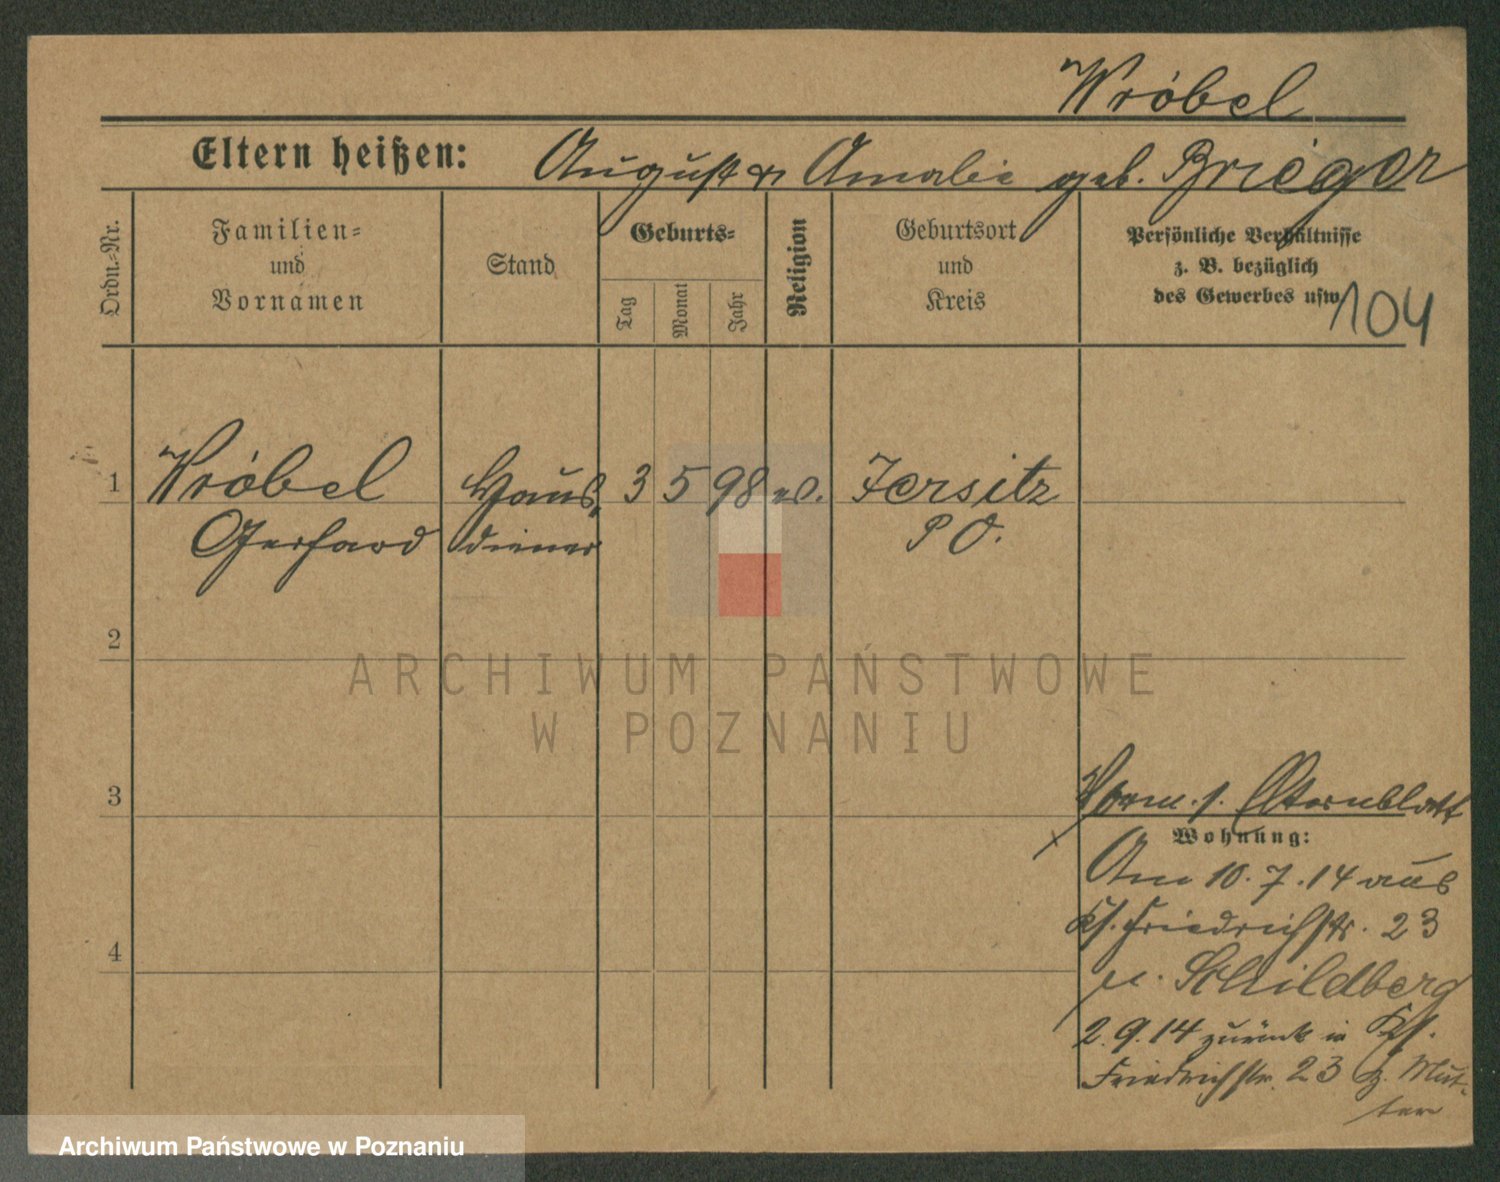 Wróbel
Eltern heißen: August u Amalie geb. Brieger
Ordn.-Nr.
Familien-
und
Vornamen
Stand
Geburts-
Tag
Monat
Jahr
Religion
Geburtsort
und
Kreis
Persönliche Verhältnisse
z. B. bezüglich
des Gewerbes usw.
104
1 Wróbel Haus- 3 5 98 ev. Jersitz
Gerhard diener P O.
2
ARCHIWUM PAŃSTWOWE
W POZNANIU
3
Verm. s. Elternblatt
Wohnung:
Am 10.7.14 aus
Ks. Friedrichstr. 23
4
n. Schildberg
2.9.14 zurück in Ks.
Friedrichstr. 23 b. Mut-
ter
Archiwum Państwowe w Poznaniu